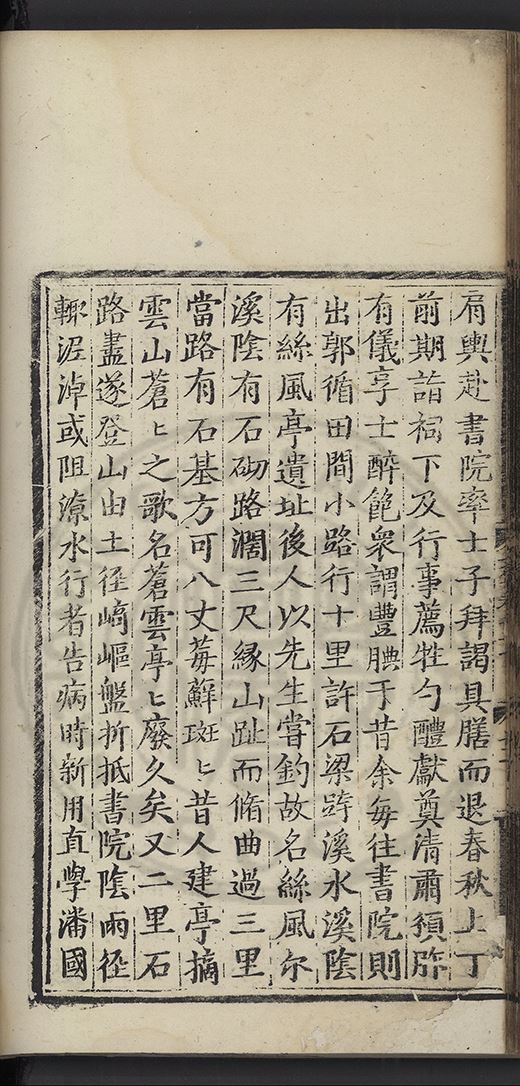 肩輿赴書院率士子拜謁具膳而退春秋上丁
前期詣祠下及行事薦牲勺醴獻奠清肅頒胙
有儀享士醉飽衆謂豐腆于昔余每往書院則
出郭循田間小路行十里許石梁跨溪水溪陰
有絲風亭遺址後人以先生嘗釣故名絲風尔
溪陰有石砌路濶三尺縁山趾而脩曲過三里
當路有石基方可八丈莓蘚斑〻昔人建亭摘
雲山蒼〻之歌名蒼雲亭〻廢久矣又二里石
路盡遂登山由土徑崎嶇盤折抵書院陰雨徑
輙泥淖或阻潦水行者告病時新用直學潘國